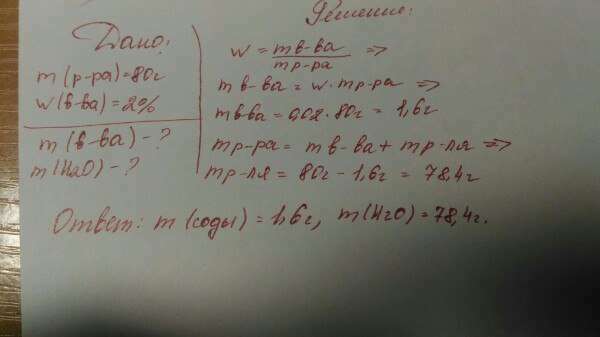 Дано:
m (р-ра) = 80г
w (в-ва) = 2%
m (в-ва) - ?
m (H2O) - ?
Решение:
w = mв-ва / mр-ра =>
mв-ва = w · mр-ра =>
mв-ва = 0,02 · 80г = 1,6г
mр-ра = mв-ва + mр-ля =>
mр-ля = 80г - 1,6г = 78,4г
Ответ: m (соды) = 1,6г, m (H2O) = 78,4г.